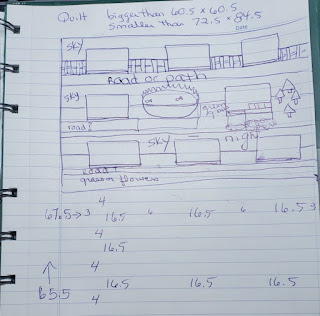 Quilt bigger than 60.5 x 60.5
smaller than 72.5 x 84.5
Date
sky
Road or path
sky
road
sky
night
road
grass or flowers
4
67.5 → 3 16.5 6 16.5 6 16.5 3
4
16.5
4
↑
65.5 16.5 16.5 16.5
4